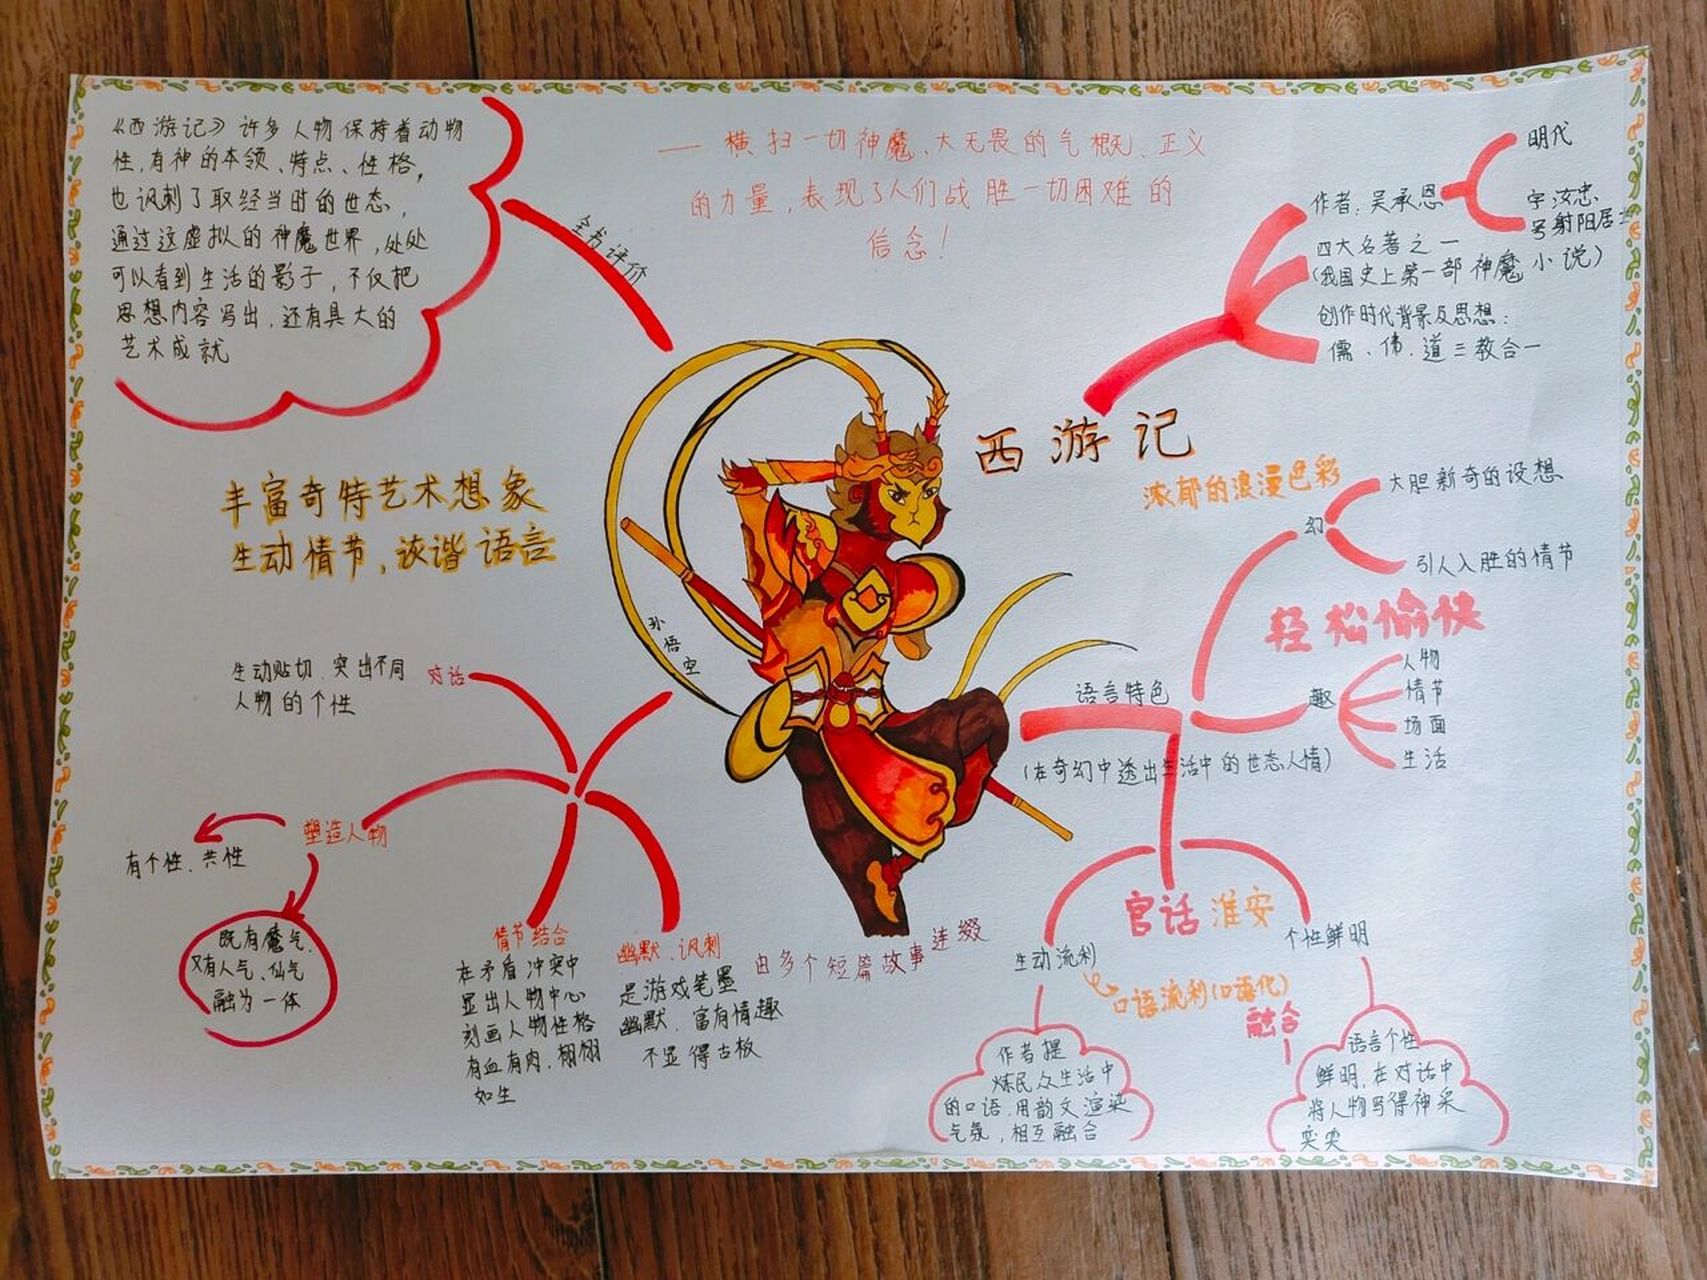 《西游记》许多人物保持着动物
性,有神的本领、特点、性格,
也讽刺了取经当时的世态,
通过这虚拟的神魔世界,处处
可以看到生活的影子,不仅把
思想内容写出,还有具大的
艺术成就
全书评价
— 横扫一切神魔、大无畏的气概、正义
的力量,表现了人们战胜一切困难的
信念!
明代
作者:吴承恩
字汝忠
号射阳居士
四大名著之一
(我国史上第一部神魔小说)
创作时代背景及思想:
儒、佛、道三教合一
西游记
浓郁的浪漫色彩
幻
大胆新奇的设想
引人入胜的情节
轻松愉快
趣
人物
情节
场面
生活
语言特色
(在奇幻中透出生活中的世态人情)
官话 淮安
生动流利
个性鲜明
口语流利(口语化)
融合
作者提
炼民众生活中
的口语,用韵文渲染
气氛,相互融合
语言个性
鲜明,在对话中
将人物写得神采
奕奕
丰富奇特艺术想象
生动情节,诙谐语言
孙悟空
生动贴切、突出不同
人物的个性
对话
塑造人物
有个性、共性
既有魔气、
又有人气、仙气
融为一体
情节结合
在矛盾冲突中
显出人物中心
刻画人物性格
有血有肉,栩栩
如生
幽默、讽刺
是游戏笔墨
幽默、富有情趣
不显得古板
由多个短篇故事连缀